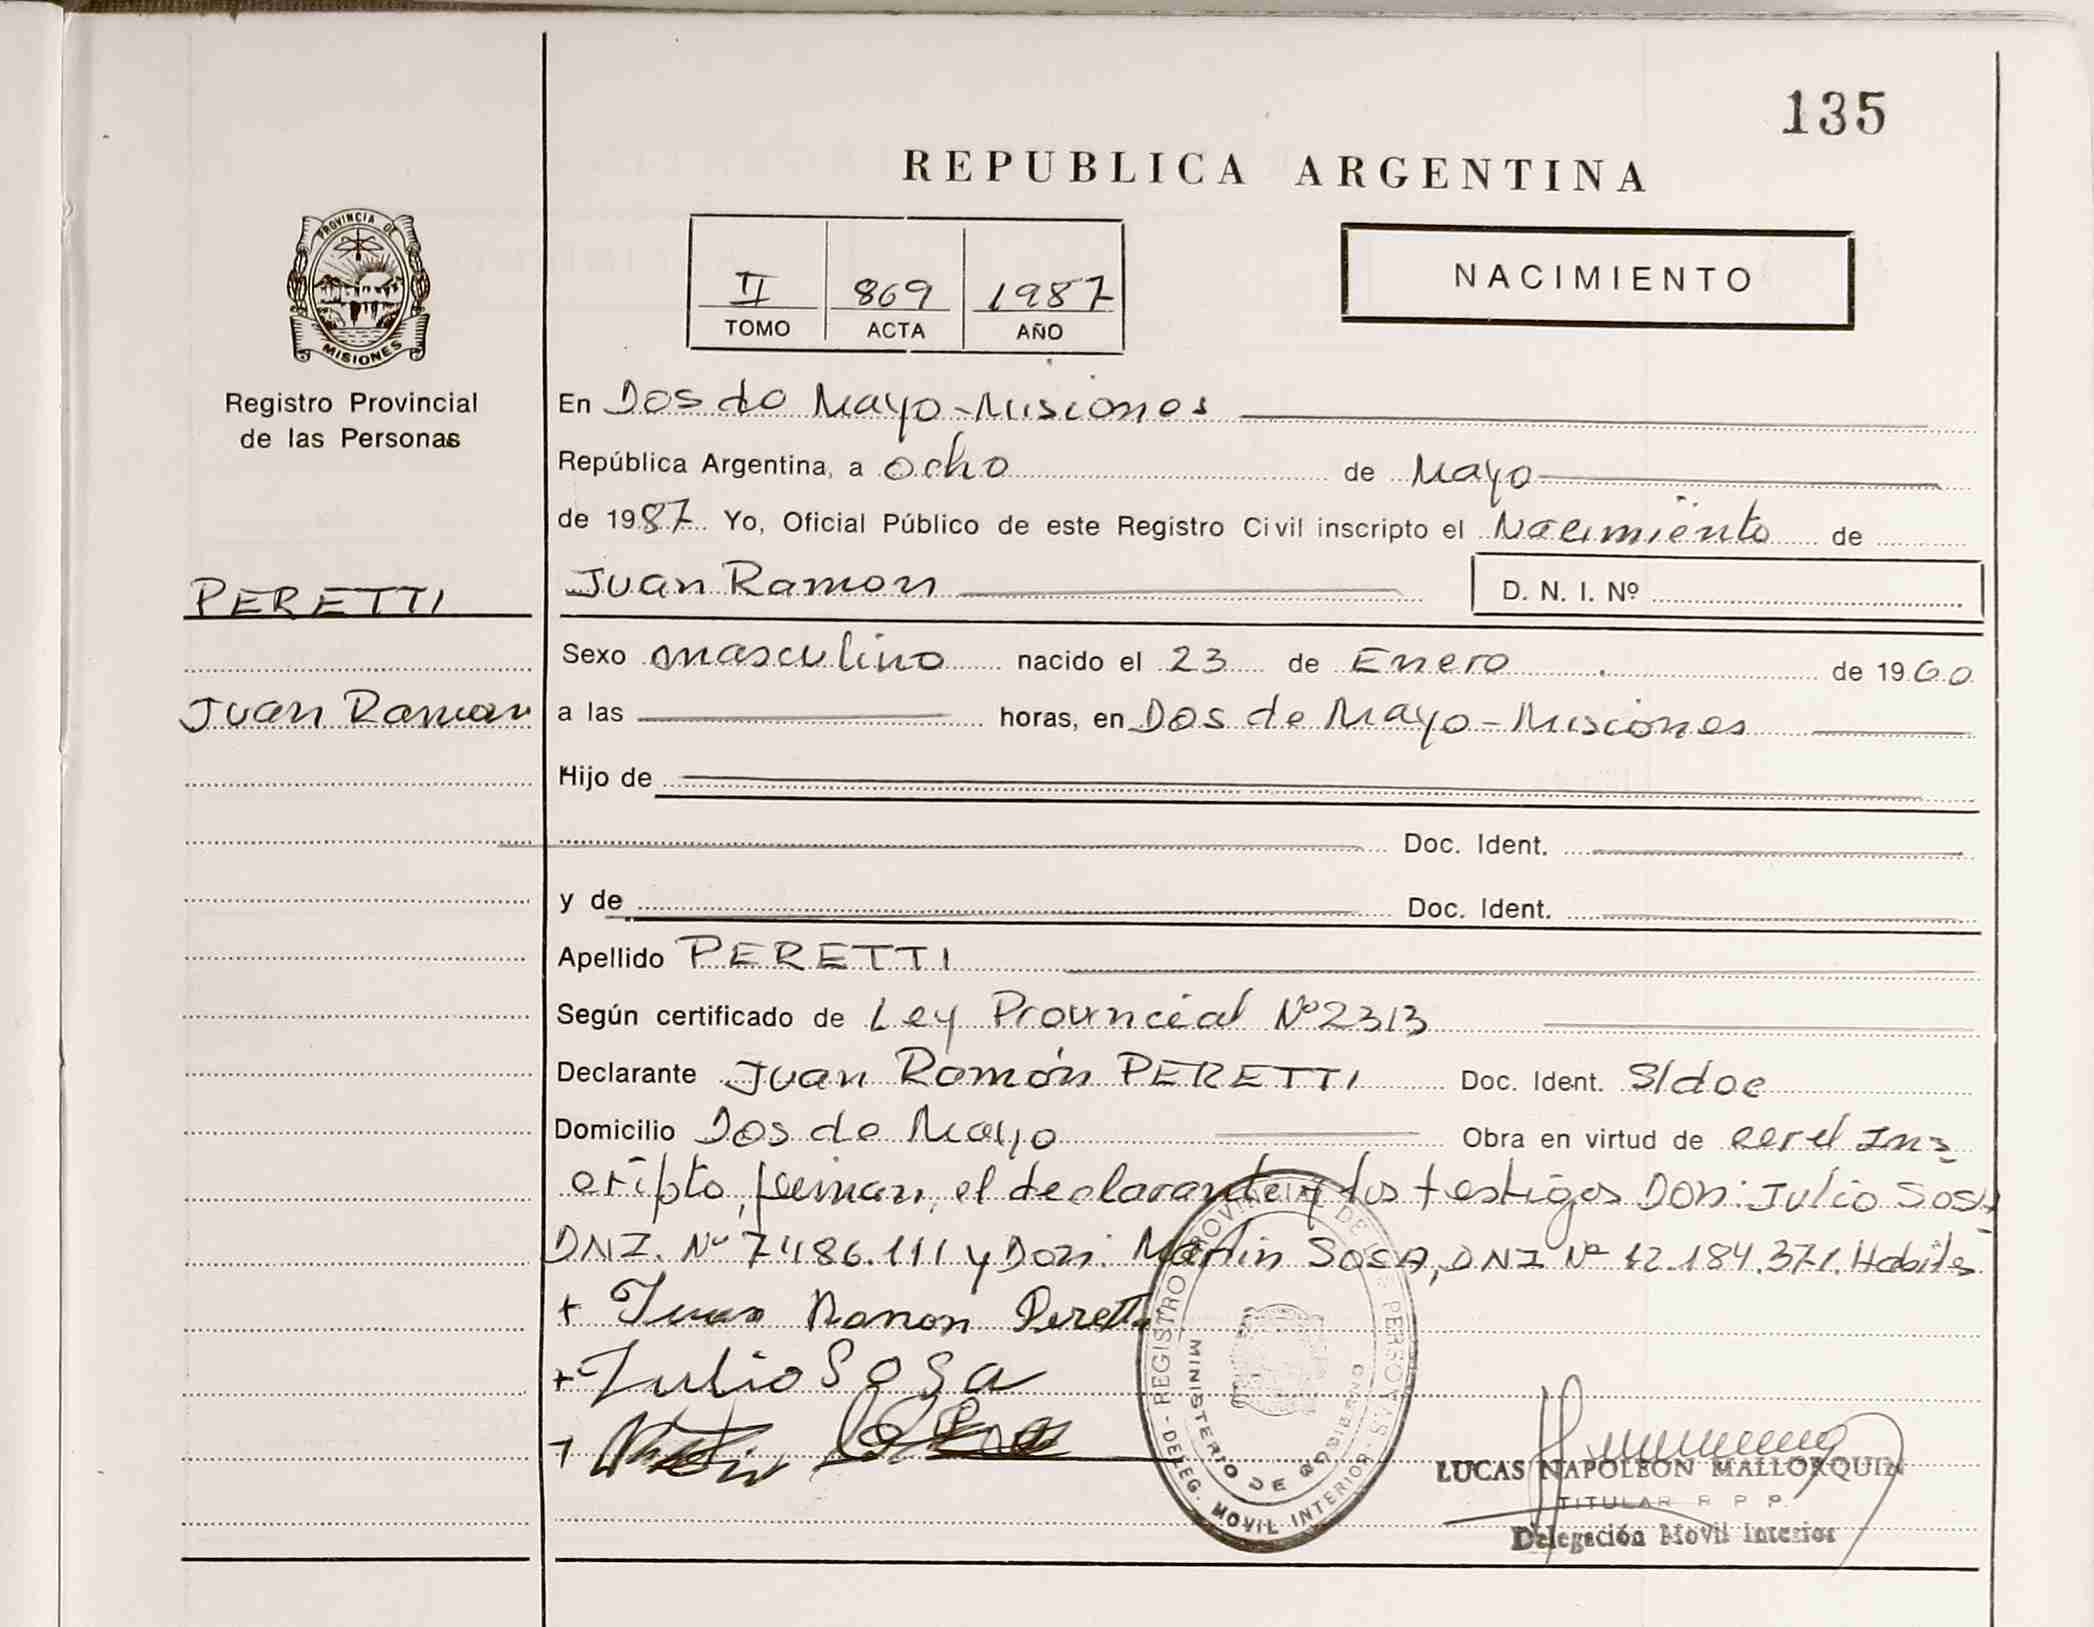 135
REPUBLICA ARGENTINA
PROVINCIA DE
MISIONES
Registro Provincial
de las Personas
II 869 1987
TOMO ACTA AÑO
NACIMIENTO
En Dos de Mayo-Misiones
República Argentina, a ocho de Mayo
de 1987 Yo, Oficial Público de este Registro Civil inscripto el Nacimiento de
PERETTI
Juan Ramon D. N. I. Nº
Sexo masculino nacido el 23 de Enero de 1960
Juan Ramon
a las horas, en Dos de Mayo-Misiones
Hijo de
Doc. Ident.
y de Doc. Ident.
Apellido PERETTI
Según certificado de Ley Provincial Nº 2313
Declarante Juan Ramón PERETTI Doc. Ident. S/doc
Domicilio Dos de Mayo Obra en virtud de ser el Ins
cripto, firman, el declarante y los testigos Don: Julio Sosa
DNI. Nº 7486.111 y Don: Martin SOSA, DNI Nº 12.184.371. Habiles
+ Juan Ramon Peretti
+ Julio Sosa
+ Martin
REGISTRO PROVINCIAL DE LAS PERSONAS - DELEG. MOVIL INTERIOR -
MINISTERIO DE GOBIERNO
LUCAS NAPOLEON MALLORQUIN
TITULAR R P P
Delegación Movil Interior